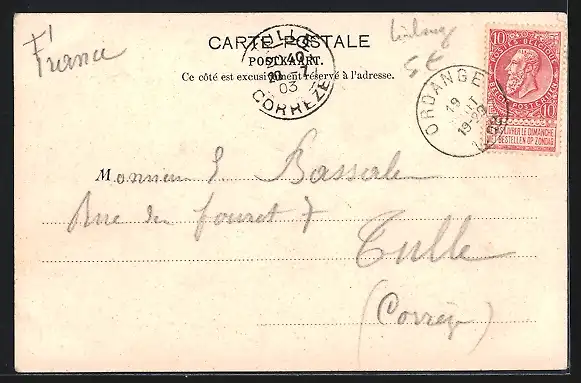 France
CARTE POSTALE
POSTKAART.
Ce côté est exclusivement réservé à l'adresse.
TULLE
20
03
CORRÈZE
Limburg
5 €
ORDANGE
19
19-20
10 10
POSTES BELGIQUE
BELGIË POSTERIJEN
NE PAS LIVRER LE DIMANCHE
NIET BESTELLEN OP ZONDAG
Monsieur E Bassaler
Rue du fouret 7
Tulle
(Corrèze)